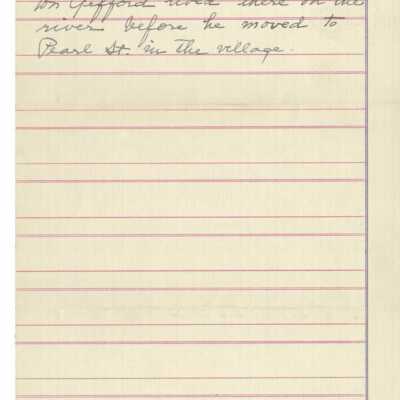 Gifford lived there on the
river before he moved to
Pearl St. in the village.